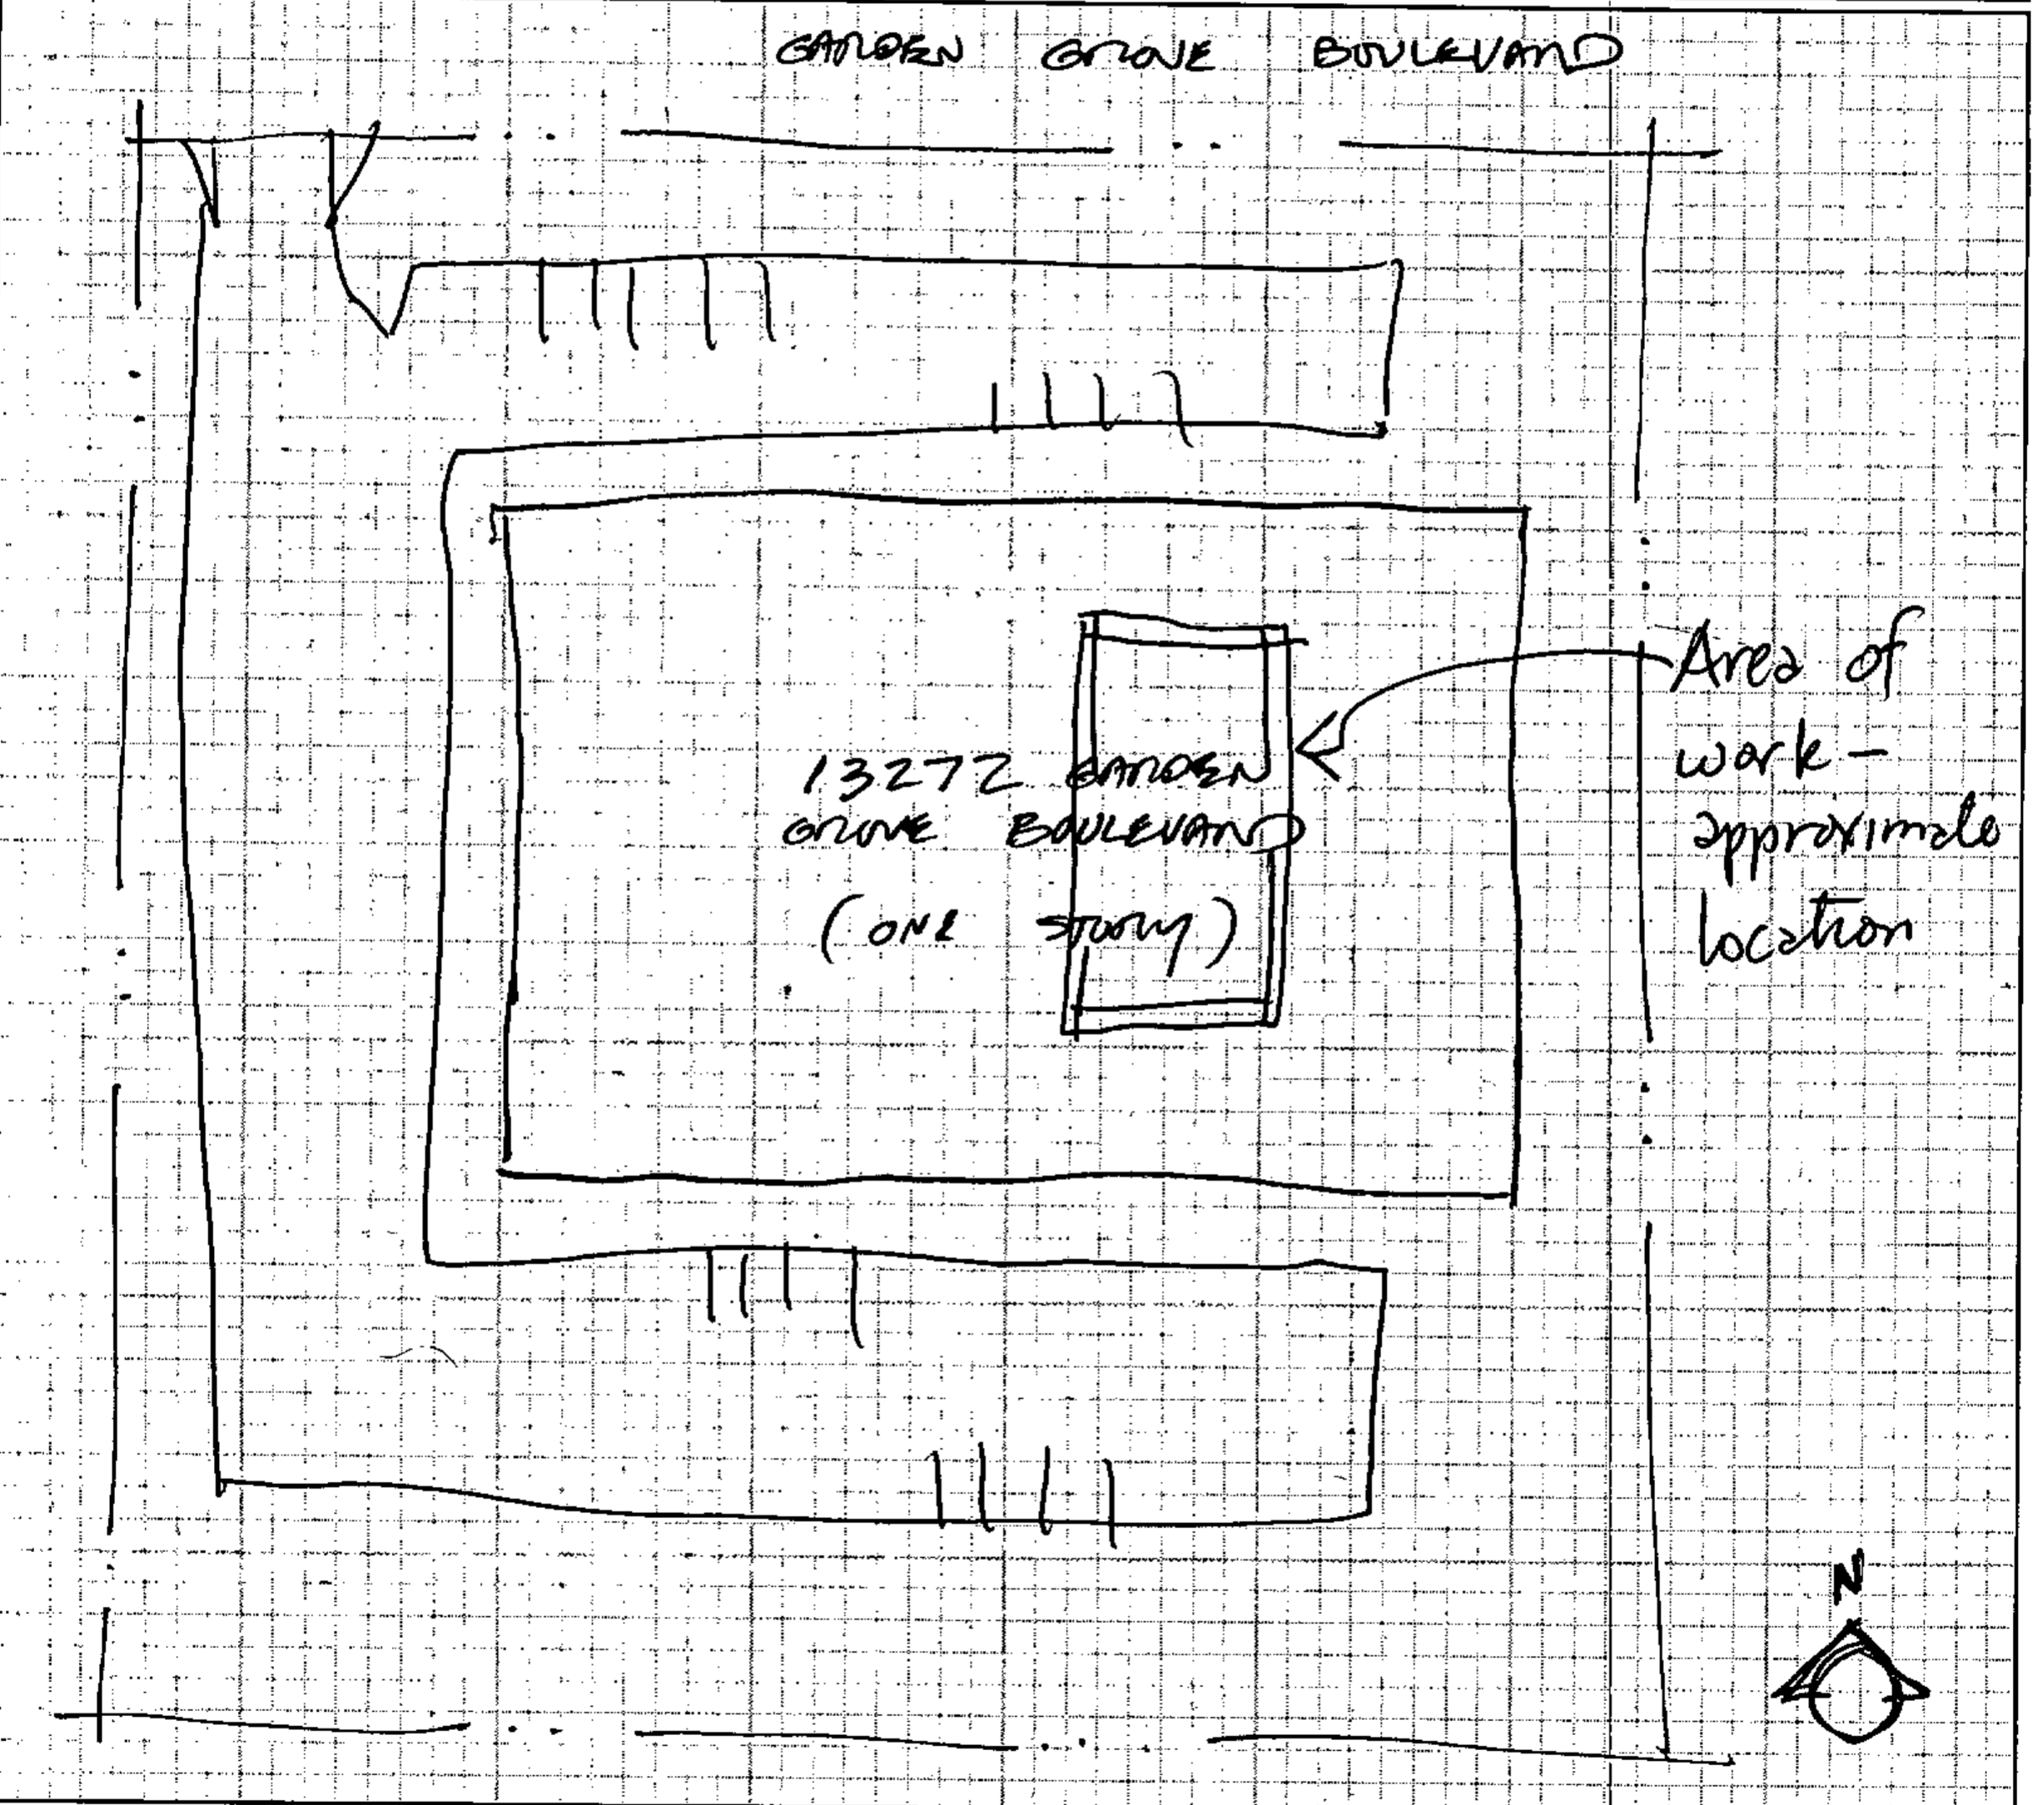 GARDEN GROVE BOULEVARD
13272 GARDEN
GROVE BOULEVARD
(ONE STORY)
Area of
work -
approximate
location
N